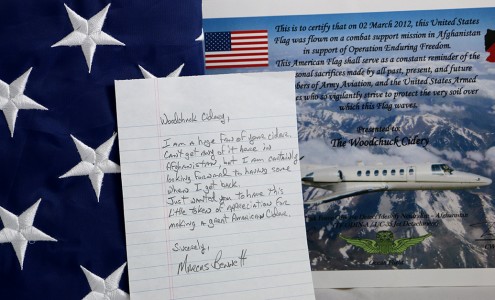 This is to certify that on 02 March 2012, this United States
Flag was flown on a combat support mission in Afghanistan
in support of Operation Enduring Freedom.
This American Flag shall serve as a constant reminder of the
sacrifices made by all past, present, and future
of Army Aviation, and the United States Armed
who vigilantly strive to protect the very soil over
which this Flag waves.
Presented to:
The Woodchuck Cidery
Woodchuck Cidery,
I am a huge fan of your cider.
Can't get any of it here in
Afghanistan, but I am certainly
looking forward to having some
when I get back.
Just wanted you to have this
little token of appreciation for
making a great American Cider.
Sincerely,
Marcus Bennett